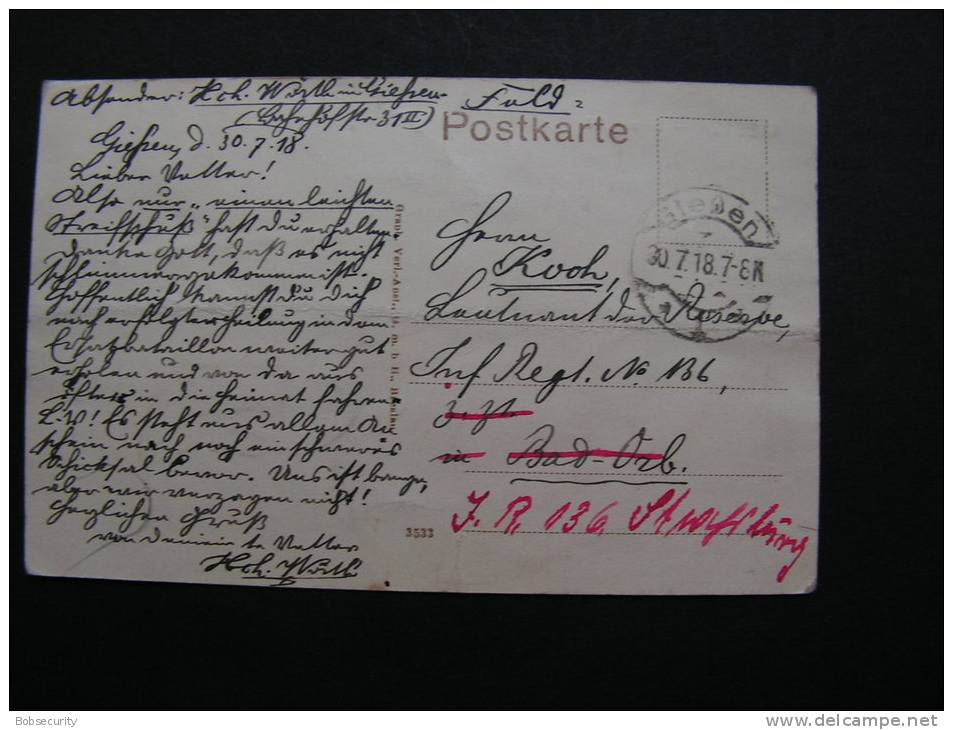 Absender: Hch. Wirth in Giessen. Feld=
(Bahnhofstr. 31 III)
Postkarte
Giessen, d. 30.7.18.
Lieber Vetter!
Also nur "einen leichten
Streifschuß" hast du erhalten.
Danke Gott, daß es nicht
schlimmer gekommen ist.
Hoffentlich kannst Du Dich
nach erfolgter heilung in dem
Ersatzbataillon weiter gut
erholen und von da aus
öfters in die Heimat fahren.
L. W! Es steht uns allem An
schein nach noch ein schweres
Schicksal bevor. Uns ist bange,
aber wir verzagen nicht!
Herzlichen Gruß
von Deinem Vetter
Hch. Wirth
Giessen
30.7.18.7-8N
Herrn
Koch,
Leutnant der Reserve,
Inf. Regt. No 136,
z. Zt.
in Bad-Orb.
J. R. 136 Straßburg
3533
Bobsecurity
www.delcampe.net